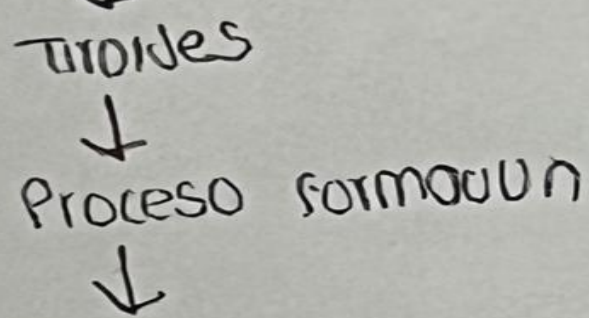 Tiroides
Proceso formación